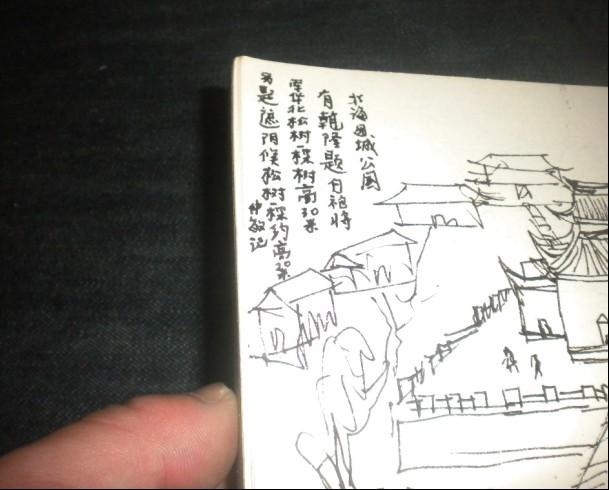 北海团城公园
有乾隆题白袍将
军华北松树一棵树高30米
另是遮阴候松树一棵约高20米
仲敏记